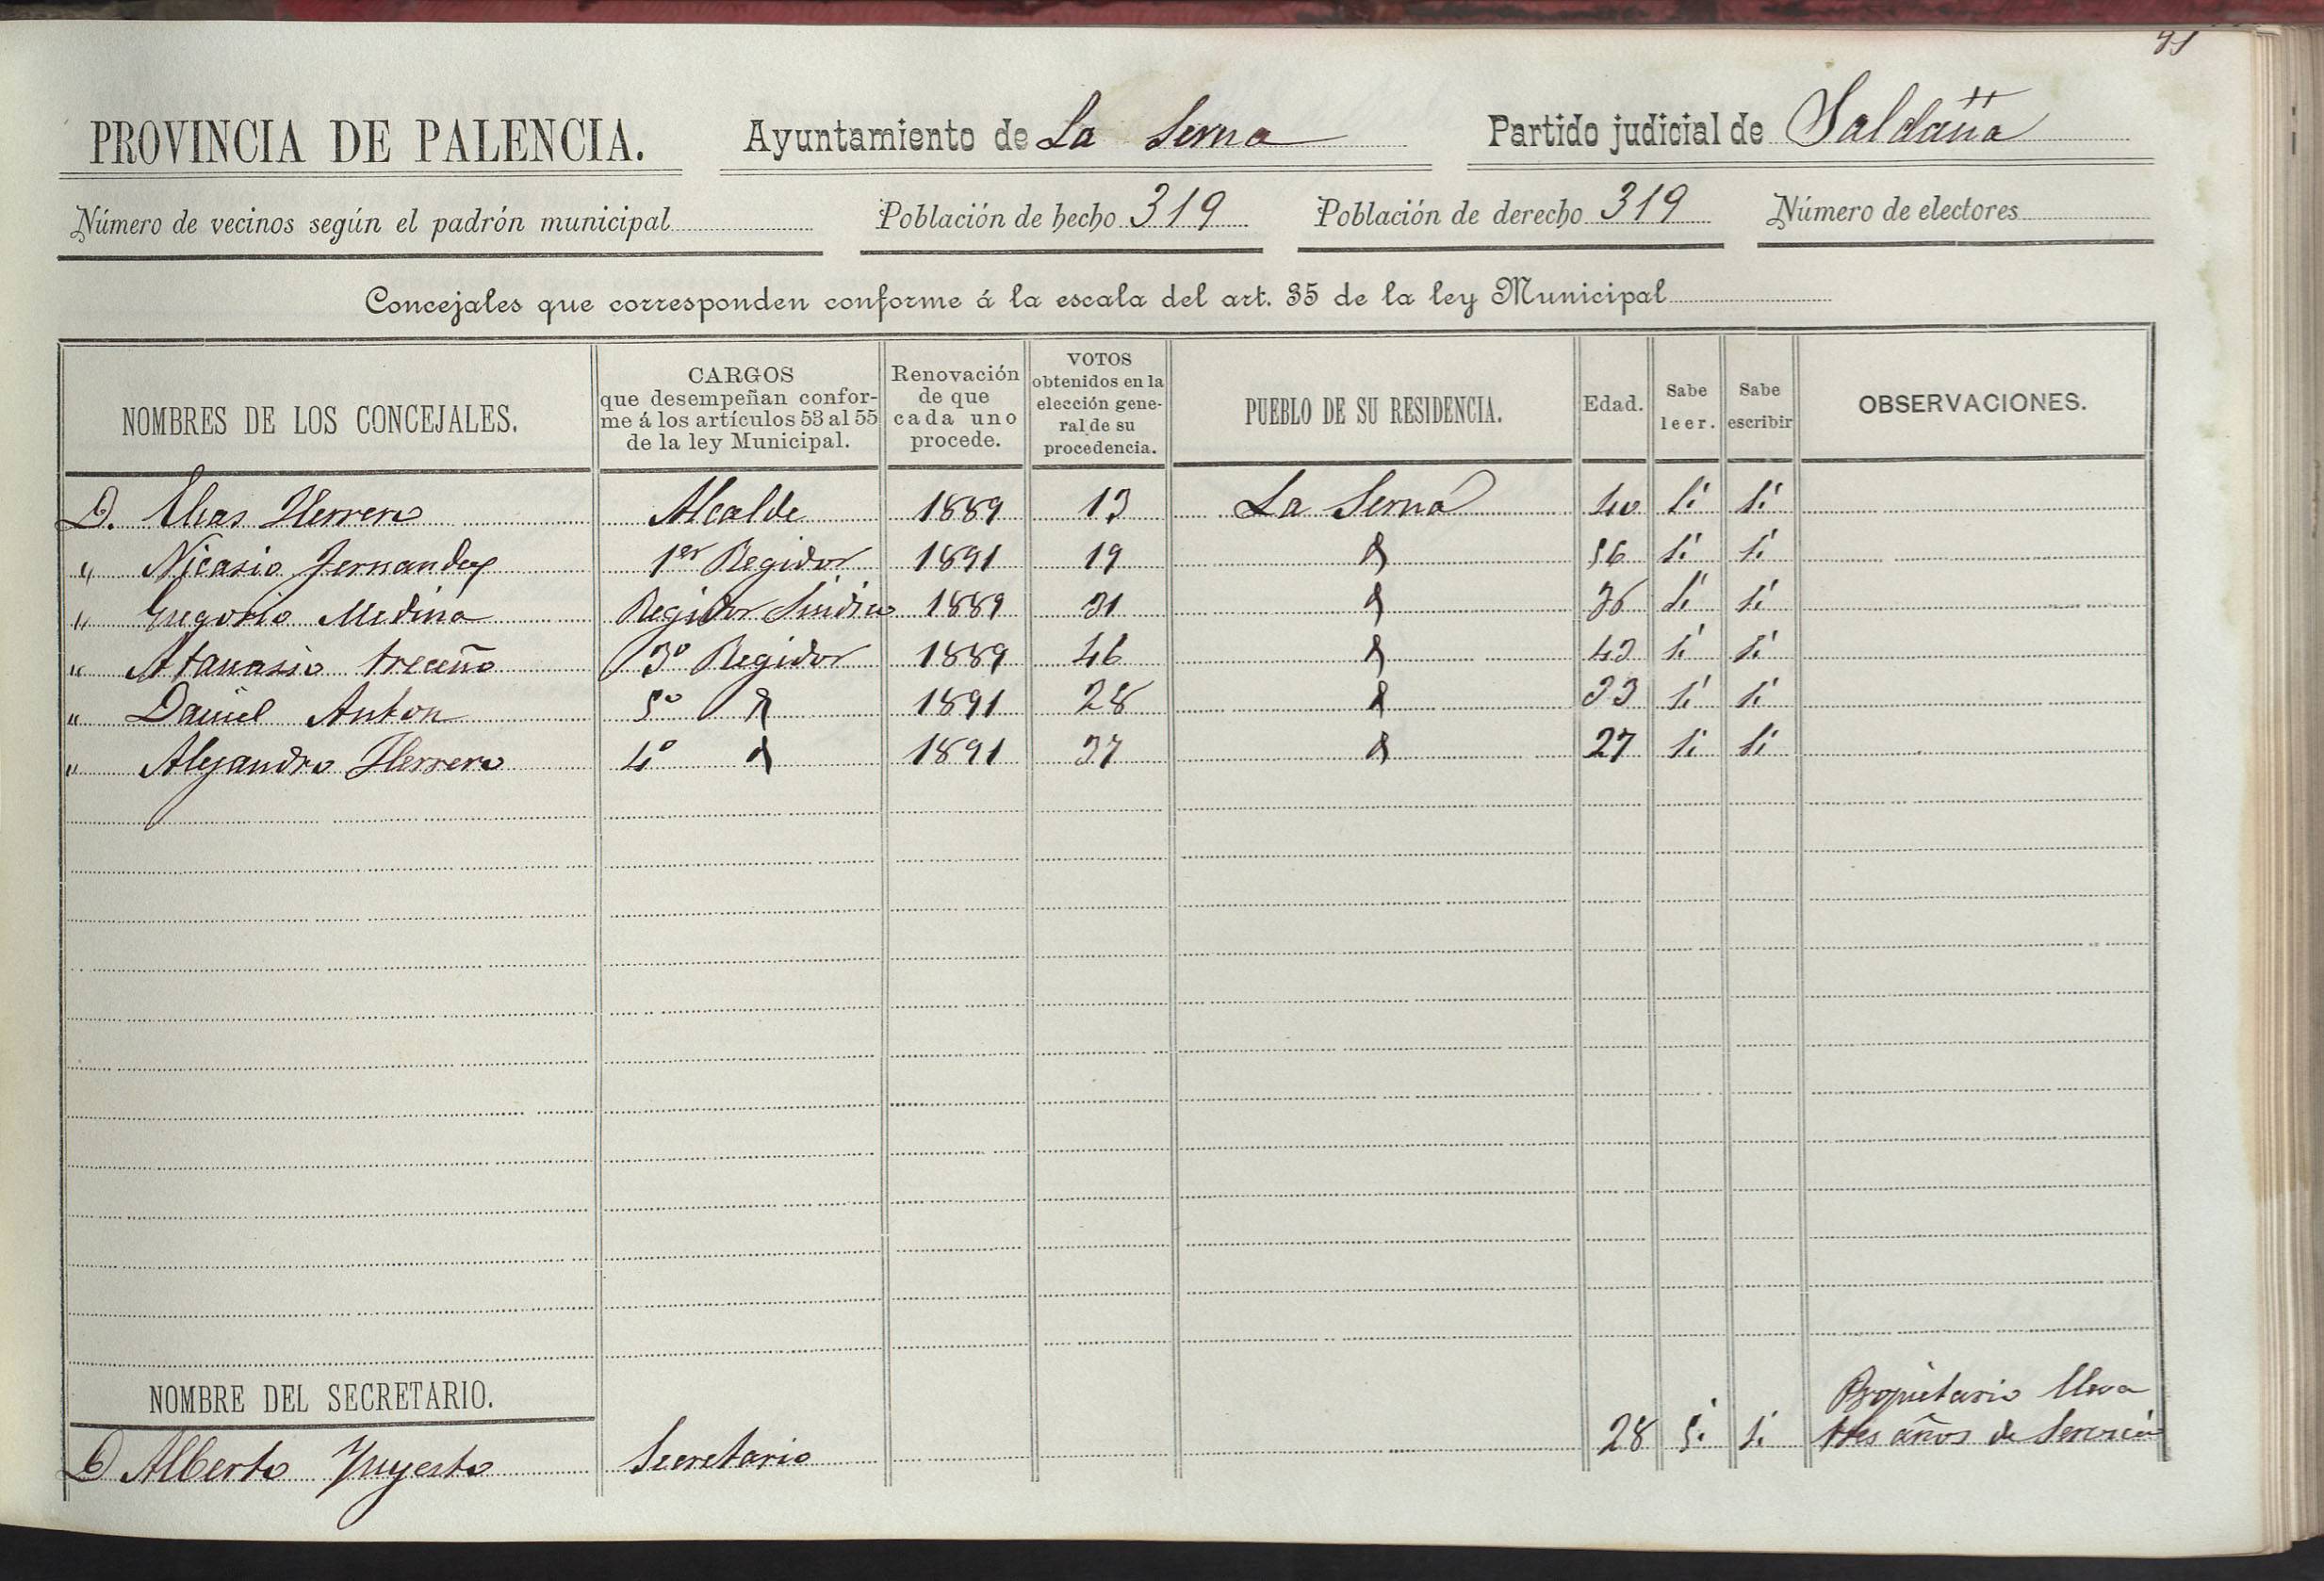 PROVINCIA DE PALENCIA. Ayuntamiento de La Serna Partido judicial de Saldaña
Número de vecinos según el padrón municipal Población de hecho 319 Población de derecho 319 Número de electores
Concejales que corresponden conforme á la escala del art. 35 de la ley Municipal
NOMBRES DE LOS CONCEJALES. CARGOS que desempeñan conforme á los artículos 53 al 55 de la ley Municipal. Renovación de que cada uno procede. VOTOS obtenidos en la elección general de su procedencia. PUEBLO DE SU RESIDENCIA. Edad. Sabe leer. Sabe escribir OBSERVACIONES.
D. Elias Herrero Alcalde 1889 13 La Serna 40 Si Si
" Nicasio Fernandez 1er Regidor 1891 19 56 Si Si
" Gregorio Medina Regidor Sindico 1889 31 36 Si Si
" Atanasio treceño 3º Regidor 1889 46 43 Si Si
" Daniel Anton 5º 1891 28 33 Si Si
" Alejandro Herrero 4º 1891 37 27 Si Si
NOMBRE DEL SECRETARIO.
D Alberto Secretario 28 Si Si Propietario lleva
tres años de Servicio